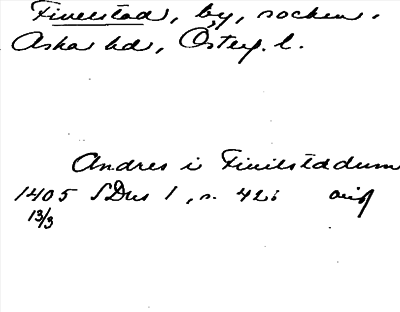 Fivelstad, by, socken.
Aska hd, Österg. l.
Andres i Fiuilstadum
1405 SDns 1, s. 42i avskr
13/3